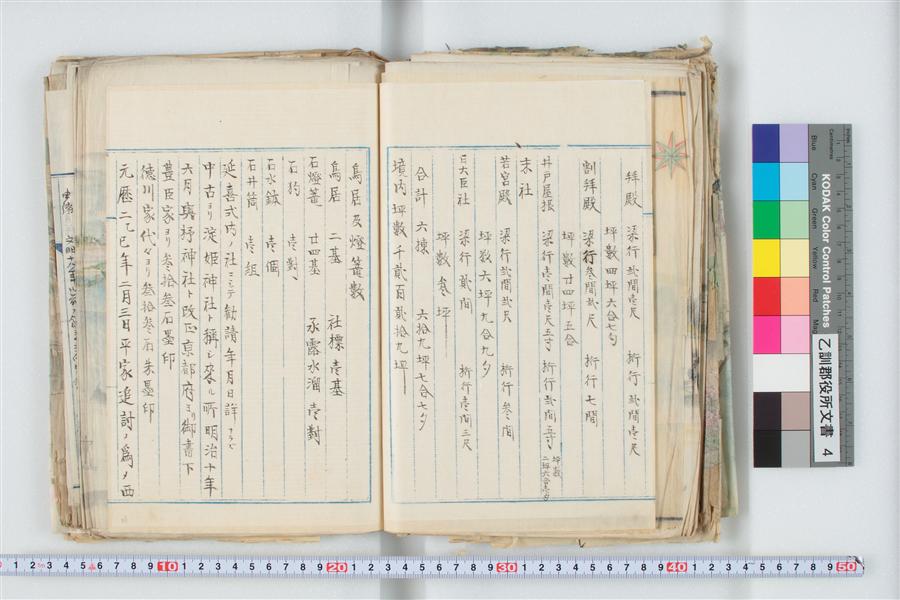 拝殿 梁行貳間壱尺 桁行貳間壱尺
坪数四坪六合七勺
割拝殿 梁行叁間貳尺 桁行七間
坪数廿四坪五合
井戸屋掘 梁行壱間壱尺五寸 桁行貳間五寸 坪数二坪六合壱勺
末社
若宮殿 梁行貳間貳尺 桁行叁間
坪数六坪九合九夕
日大臣社 梁行貳間 桁行壱間三尺
坪数叁坪
合計 六棟 六拾九坪七合七夕
境内坪数千貳百貳拾九坪
鳥居及燈篭数
鳥居 二基 社標壱基
石燈篭 廿四基 承露水溜壱對
石狗 壱對
石水鉢 壱個
石井筒 壱組
延喜式内ノ社ニシテ勧請年月日詳ナラズ
中古ヨリ淀姫神社ト稱シ來ル所明治十年
六月與杼神社ト改正京都府ヨリ御書下
豊臣家ヨリ叁拾叁石墨印
徳川家代々ヨリ叁拾叁石朱墨印
元歴二乙巳年二月三日平家追討ノ為メ西
KODAK Color Control Patches
Blue
Cyan
Green
Yellow
Red
Mag
Centimetres
乙訓郡役所文書 4